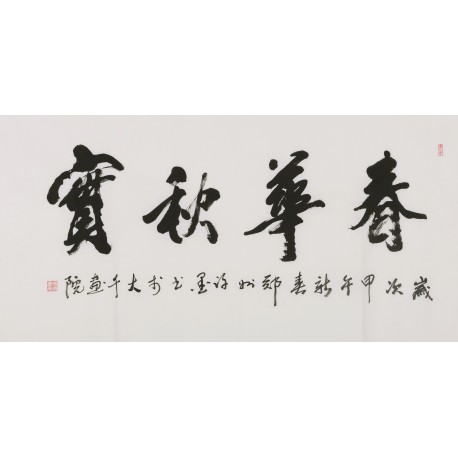 春華秋實
歲次甲午新春鄭州許墨書於大千畫院